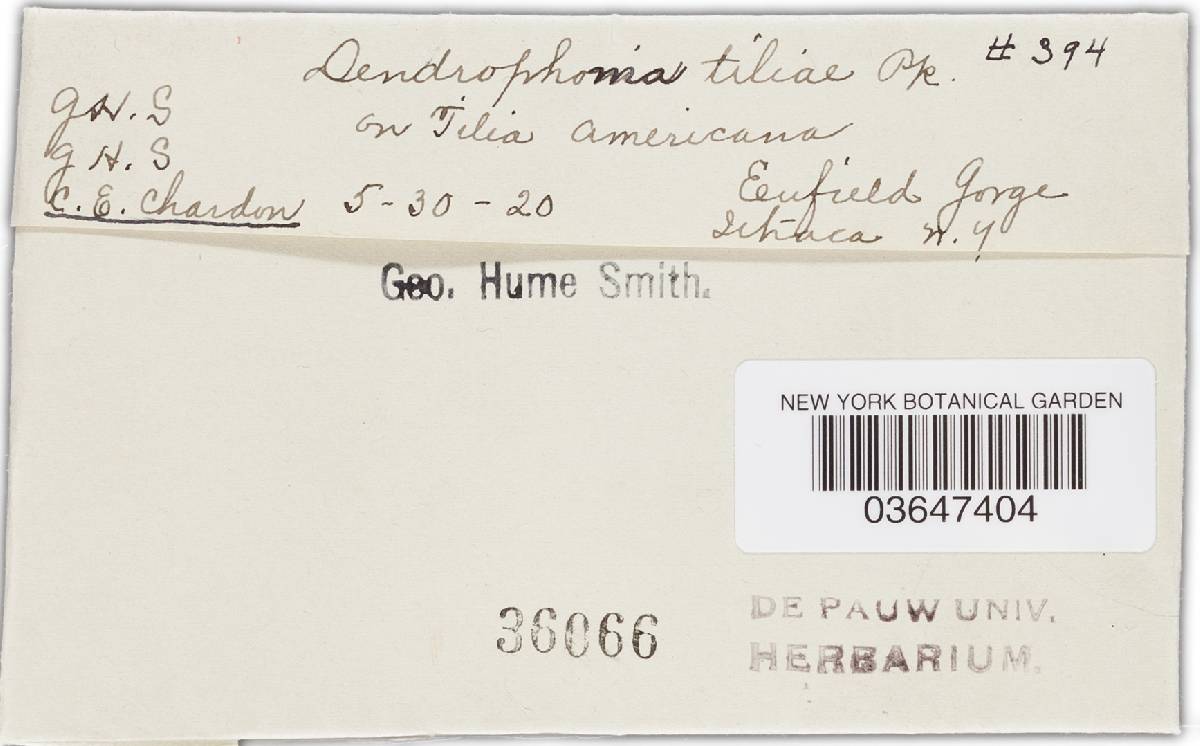 Dendrophoma tiliae Pk. # 394
G H. S
on Tilia americana
G H. S
C. E. Chardon 5-30-20
Enfield Gorge
Ithaca N. Y
Geo. Hume Smith.
NEW YORK BOTANICAL GARDEN
03647404
36066
DE PAUW UNIV.
HERBARIUM.